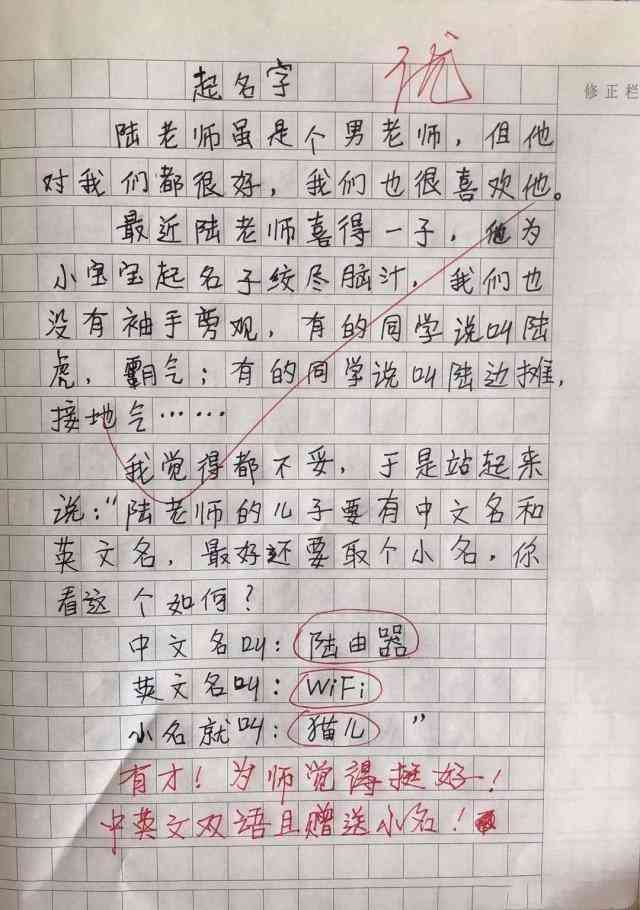 起名字
优
修正栏
陆老师虽是个男老师，但他
对我们都很好，我们也很喜欢他。
最近陆老师喜得一子，他为
小宝宝起名子绞尽脑汁，我们也
没有袖手剪观，有的同学说叫陆
虎，霸气；有的同学说叫陆边摊，
接地气……
我觉得都不妥，于是站起来
说："陆老师的儿子要有中文名和
英文名，最好还要取个小名，你
看这个如何？
中文名叫：陆由器
英文名叫：WiFi
小名就叫：猫儿"
有才！为师觉得挺好！
中英文双语且赠送小名！